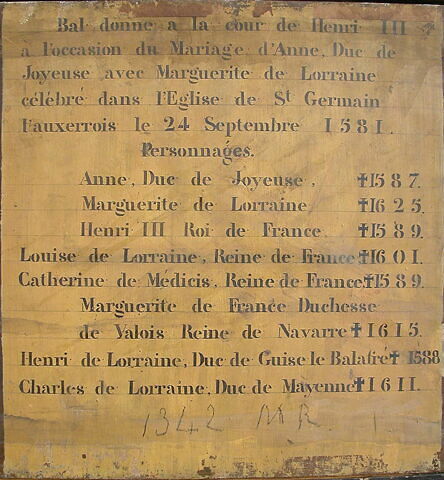 Bal donne a la cour de Henri III
a l'occasion du Mariage d'Anne, Duc de
Joyeuse avec Marguerite de Lorraine
célébré dans l'Eglise de St Germain
l'auxerrois le 24 Septembre 1581.
Personnages.
Anne, Duc de Joyeuse, ✝1587.
Marguerite de Lorraine ✝1625.
Henri III Roi de France. ✝1589.
Louise de Lorraine, Reine de France ✝1601.
Catherine de Médicis, Reine de France ✝1589.
Marguerite de France Duchesse
de Valois Reine de Navarre ✝1615.
Henri de Lorraine, Duc de Guise le Balafré ✝1588
Charles de Lorraine, Duc de Mayenne ✝1611.
1342 M.R.